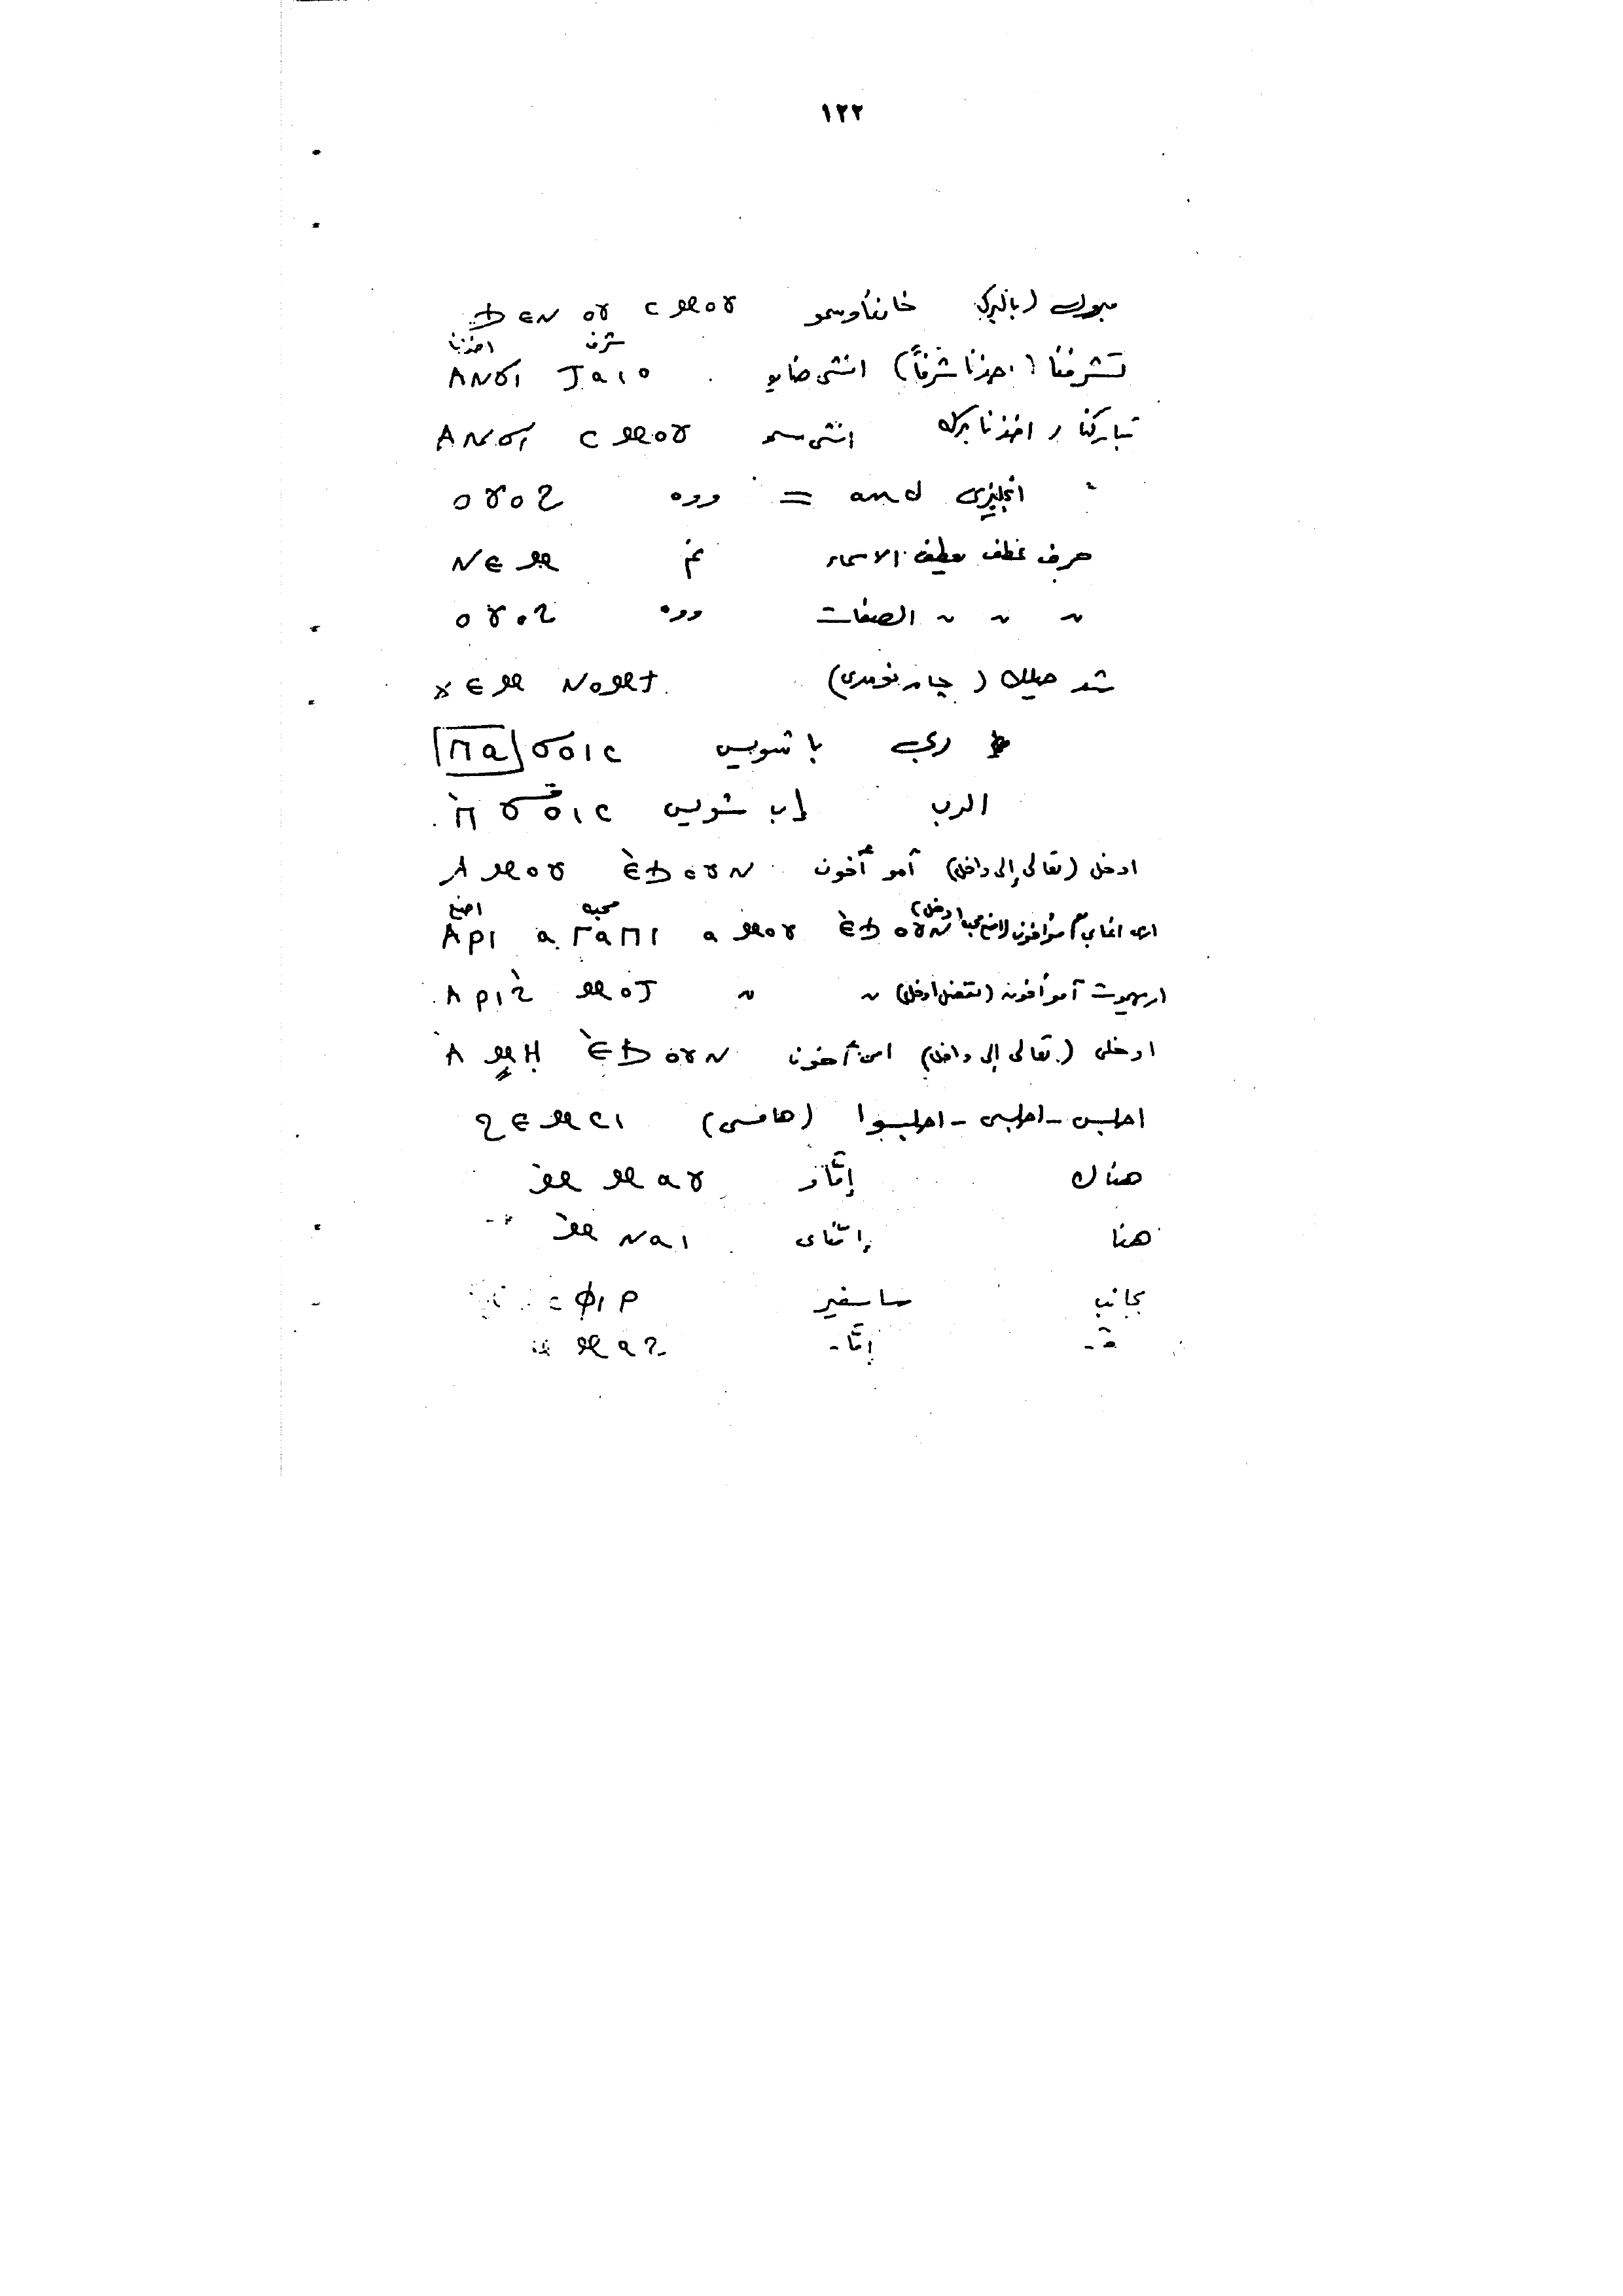 ١٢٢
مبروك (بالبركة خان أوسمو ϦⲈⲚ ⲞⲨ ⲤⲘⲞⲨ
شرف اخذنا
تشرفنا (اخذنا شرفاً) انتشى ضايو ⲀⲚϬⲒ ϮⲀⲒⲞ
تباركنا ( اخذنا بركة انتشى سمو ⲀⲚϬⲒ ⲤⲘⲞⲨ
انجليزى and = ووه ⲞⲨⲞϨ
حرف عطف يعطف الاسماء نم ⲚⲈⲘ
〃 〃 〃 الصفات ووه ⲞⲨⲞϨ
شد حيلك ( چام نومتى) ϪⲈⲘ ⲚⲞⲘϮ
ربى باتشويس ⲠⲀϬⲞⲒⲤ
الرب إبتشويس Ⲡ̀ϬⲞⲒⲤ
ادخل (تعالى إلى داخل) آمو آخون ⲀⲘⲞⲨ ⲈϦⲞⲨⲚ
محبة اصنع
ارى اغابى آمو اخون ⲀⲢⲒ ⲀⲄⲀⲠⲒ ⲀⲘⲞⲨ Ⲉ̀ϦⲞⲨⲚ
اريهموت آمو أخون (تفضل ادخل) 〃 〃 ⲀⲢⲒϨ̀ⲘⲞϮ
ادخلى (تعالى إلى داخل) امى آخون ⲀⲘⲎ Ⲉ̀ϦⲞⲨⲚ
اجلس - اجلسى - اجلسوا (هامسى) ϨⲈⲘⲤⲒ
هناك إمّاو Ⲙ̀ⲘⲀⲨ
هنا إمناى Ⲙ̀ⲚⲀⲒ
بجانب ساسفير ⲤⲪⲒⲢ